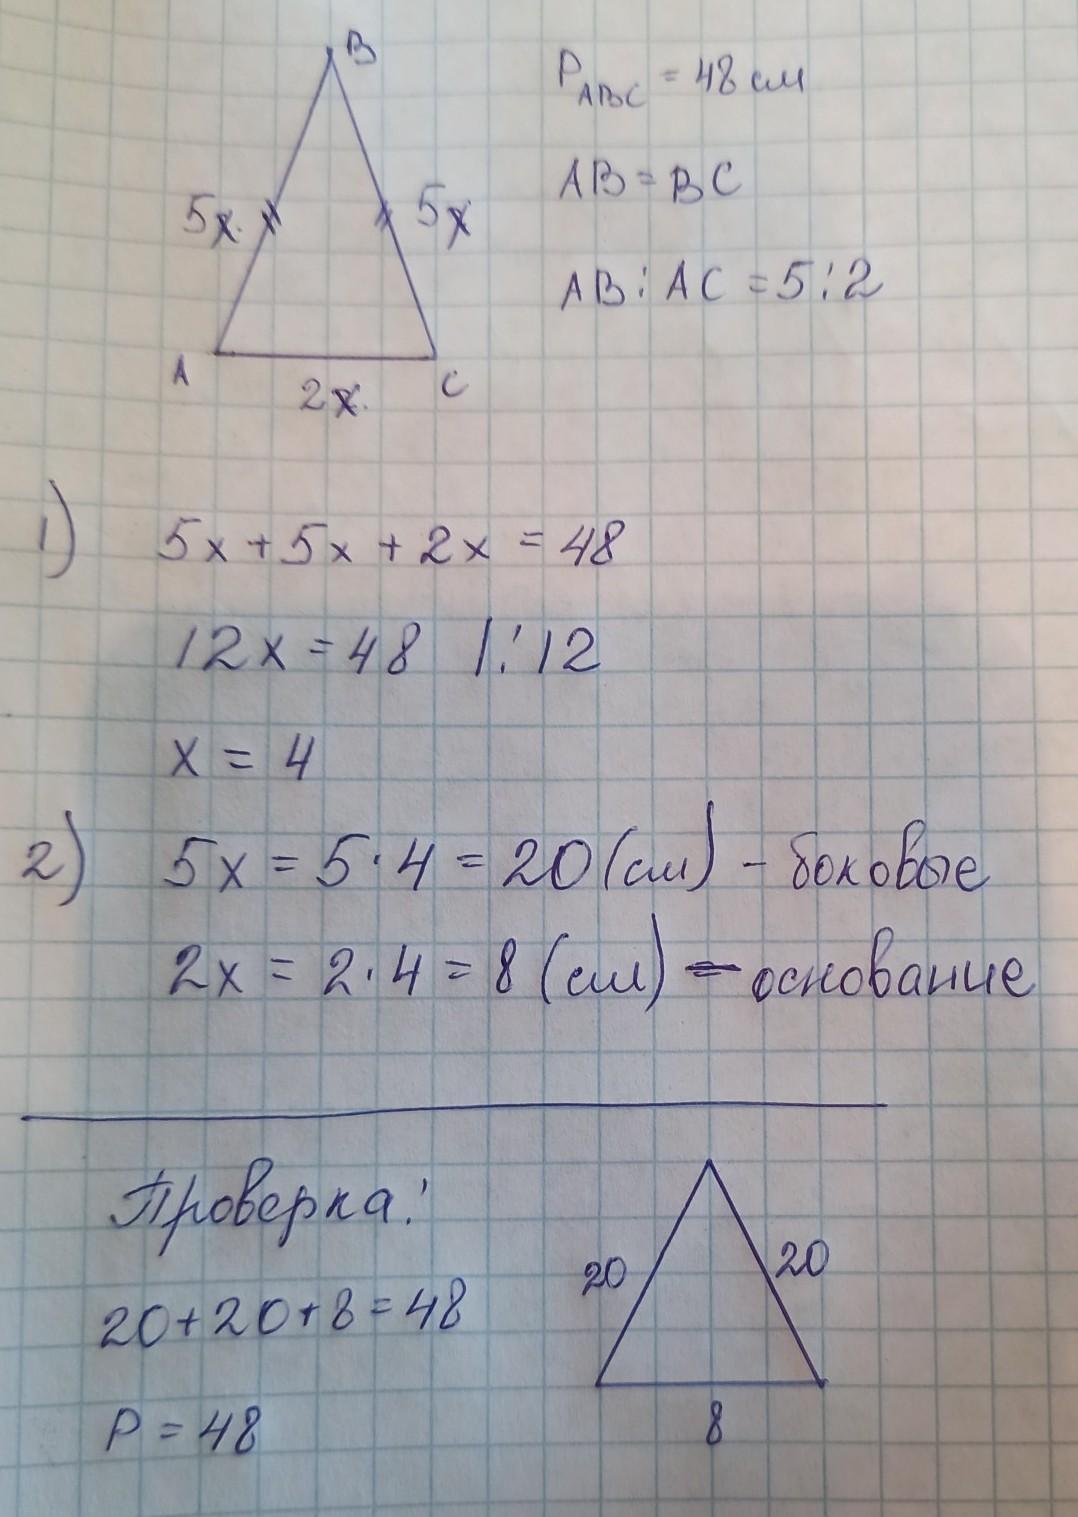 B
P_ABC = 48 см
AB = BC
5x 5x
AB : AC = 5 : 2
A C
2x
1) 5x + 5x + 2x = 48
12x = 48 | : 12
x = 4
2) 5x = 5 · 4 = 20 (см) - боковые
2x = 2 · 4 = 8 (см) - основание
Проверка:
20 20
20 + 20 + 8 = 48
P = 48
8